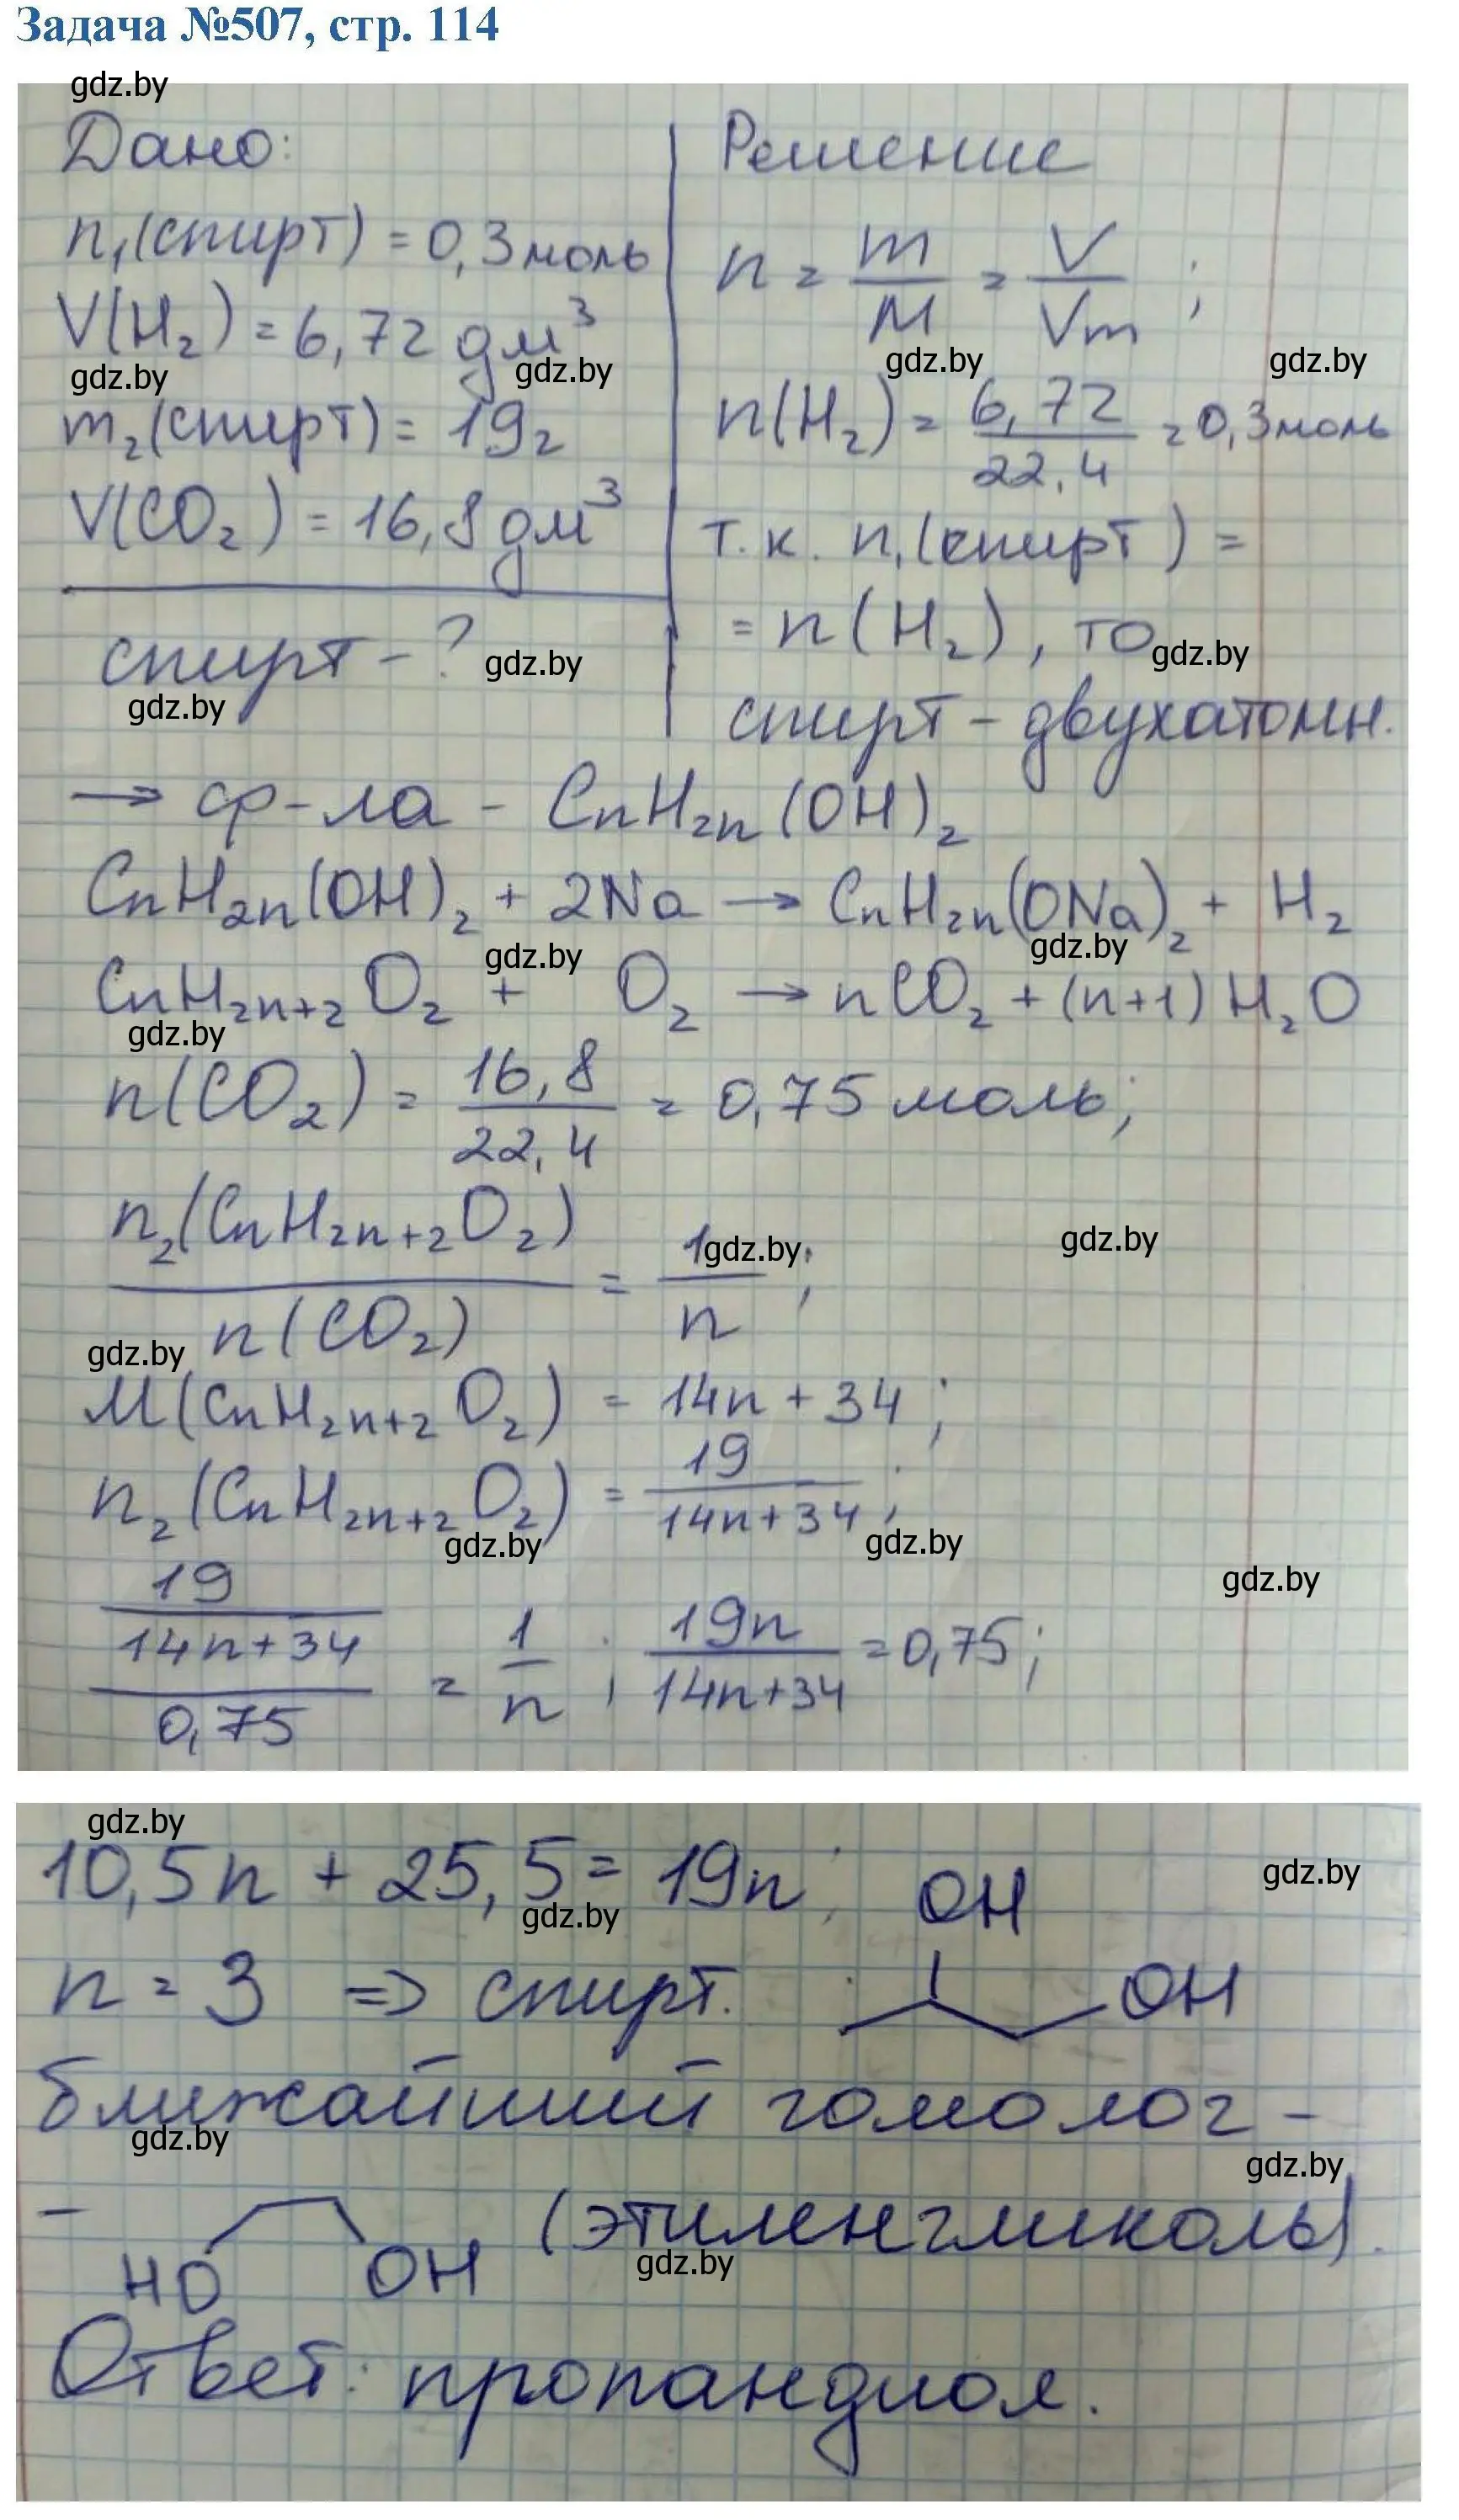 Задача №507, стр. 114
gdz.by
Дано:
n₁(спирт) = 0,3 моль
V(H₂) = 6,72 дм³
gdz.by gdz.by
m₂(спирт) = 19г
V(CO₂) = 16,8 дм³
спирт - ? gdz.by
gdz.by
Решение
n = m/M = V/Vm ;
gdz.by gdz.by
n(H₂) = 6,72/22,4 = 0,3 моль
т.к. n₁(спирт) =
= n(H₂), то
gdz.by
спирт - двухатомн.
→ ф-ла - CnH₂n(OH)₂
CnH₂n(OH)₂ + 2Na → CnH₂n(ONa)₂ + H₂
gdz.by gdz.by
CnH₂n+₂O₂ + O₂ → nCO₂ + (n+1)H₂O
gdz.by
n(CO₂) = 16,8/22,4 = 0,75 моль;
n₂(CnH₂n+₂O₂)/n(CO₂) = 1/n ;
gdz.by gdz.by
gdz.by
M(CnH₂n+₂O₂) = 14n + 34 ;
n₂(CnH₂n+₂O₂) = 19/14n+34 ;
gdz.by gdz.by
gdz.by
19/14n+34/0,75 = 1/n ; 19n/14n+34 = 0,75;
gdz.by
10,5n + 25,5 = 19n;
gdz.by gdz.by
OH
n = 3 => спирт.
OH
ближайший гомолог -
gdz.by gdz.by
- HO OH (этиленгликоль).
gdz.by
Ответ: пропандиол.